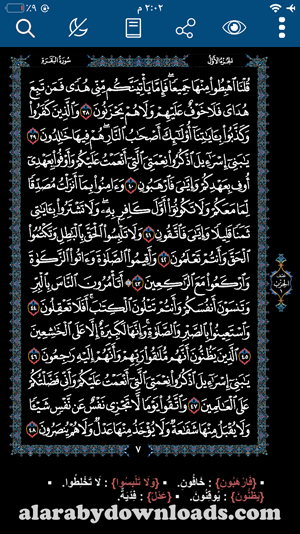 ٢:٠٢ م
٩٪
الجزء الأول
سورة البقرة
قُلْنَا ٱهْبِطُوا۟ مِنْهَا جَمِيعًا فَإِمَّا يَأْتِيَنَّكُم مِّنِّى هُدًى فَمَن تَبِعَ
هُدَاىَ فَلَا خَوْفٌ عَلَيْهِمْ وَلَا هُمْ يَحْزَنُونَ ٣٨ وَٱلَّذِينَ كَفَرُوا۟
وَكَذَّبُوا۟ بِـَٔايَـٰتِنَآ أُو۟لَـٰٓئِكَ أَصْحَـٰبُ ٱلنَّارِ هُمْ فِيهَا خَـٰلِدُونَ ٣٩
يَـٰبَنِىٓ إِسْرَٰٓءِيلَ ٱذْكُرُوا۟ نِعْمَتِىَ ٱلَّتِىٓ أَنْعَمْتُ عَلَيْكُمْ وَأَوْفُوا۟ بِعَهْدِىٓ
أُوفِ بِعَهْدِكُمْ وَإِيَّـٰىَ فَٱرْهَبُونِ ٤٠ وَءَامِنُوا۟ بِمَآ أَنزَلْتُ مُصَدِّقًا
لِّمَا مَعَكُمْ وَلَا تَكُونُوٓا۟ أَوَّلَ كَافِرٍۭ بِهِۦ وَلَا تَشْتَرُوا۟ بِـَٔايَـٰتِى
ثَمَنًا قَلِيلًا وَإِيَّـٰىَ فَٱتَّقُونِ ٤١ وَلَا تَلْبِسُوا۟ ٱلْحَقَّ بِٱلْبَـٰطِلِ وَتَكْتُمُوا۟
ٱلْحَقَّ وَأَنتُمْ تَعْلَمُونَ ٤٢ وَأَقِيمُوا۟ ٱلصَّلَوٰةَ وَءَاتُوا۟ ٱلزَّكَوٰةَ
وَٱرْكَعُوا۟ مَعَ ٱلرَّٰكِعِينَ ٤٣ أَتَأْمُرُونَ ٱلنَّاسَ بِٱلْبِرِّ
وَتَنسَوْنَ أَنفُسَكُمْ وَأَنتُمْ تَتْلُونَ ٱلْكِتَـٰبَ أَفَلَا تَعْقِلُونَ ٤٤
وَٱسْتَعِينُوا۟ بِٱلصَّبْرِ وَٱلصَّلَوٰةِ وَإِنَّهَا لَكَبِيرَةٌ إِلَّا عَلَى ٱلْخَـٰشِعِينَ
٤٥ ٱلَّذِينَ يَظُنُّونَ أَنَّهُم مُّلَـٰقُوا۟ رَبِّهِمْ وَأَنَّهُمْ إِلَيْهِ رَٰجِعُونَ ٤٦
يَـٰبَنِىٓ إِسْرَٰٓءِيلَ ٱذْكُرُوا۟ نِعْمَتِىَ ٱلَّتِىٓ أَنْعَمْتُ عَلَيْكُمْ وَأَنِّى فَضَّلْتُكُمْ
عَلَى ٱلْعَـٰلَمِينَ ٤٧ وَٱتَّقُوا۟ يَوْمًا لَّا تَجْزِى نَفْسٌ عَن نَّفْسٍ شَيْـًٔا
وَلَا يُقْبَلُ مِنْهَا شَفَـٰعَةٌ وَلَا يُؤْخَذُ مِنْهَا عَدْلٌ وَلَا هُمْ يُنصَرُونَ ٤٨
٧
• {فَارْهَبُونِ} : خَافُونِ. • {وَلَا تَلْبِسُوا} : لَا تَخْلِطُوا. •
{يَظُنُّونَ} : يُوقِنُونَ. • {عَدْلٌ} : فِدْيَةٌ.
alarabydownloads.com